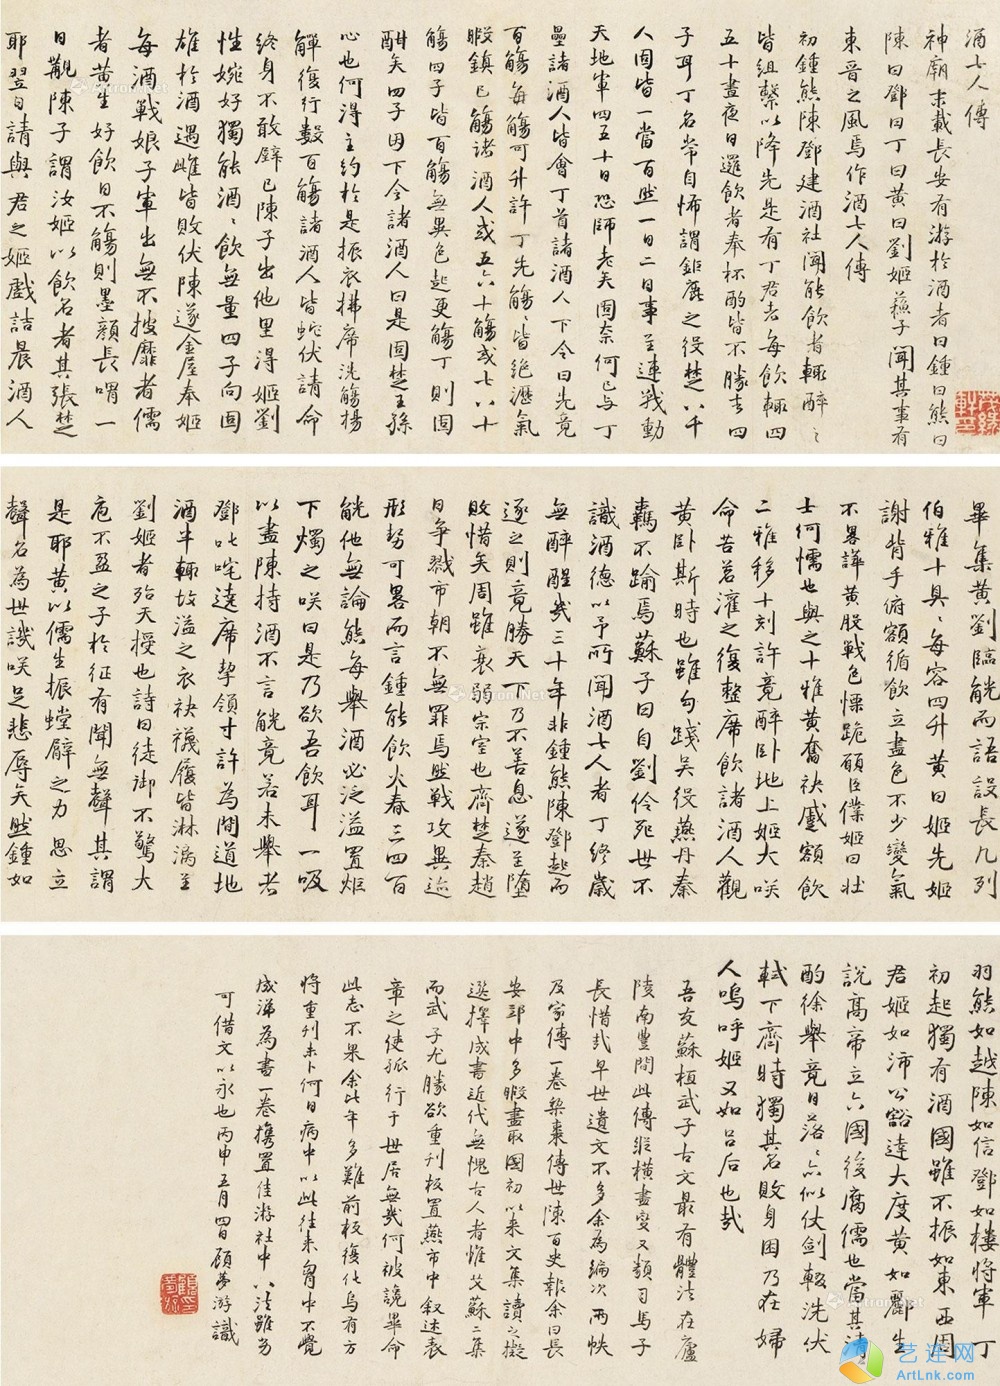 酒七人傳
神廟末載長安有游於酒者曰鍾曰熊曰
陳曰鄧曰丁曰黃曰劉姬蘇子聞其事有
東晉之風焉作酒七人傳
初鍾熊陳鄧建酒社聞能飲者輒醉之
皆組繫以降先是有丁君者每飲輒四
五十盡夜日邏飲者奉杯酌皆不勝去四
子耳丁名常自怖謂鉅鹿之役楚八千
人固皆一當百然一日二日事至連戰動
天地軍四五十日恐師老矣固奈何已与丁
壘諸酒人皆會丁首諸酒人下令曰先竟
百觴每觴可升許丁先觴觴皆絕瀝氣
暇鎮已觴諸酒人或五六十觴或七八十
觴四子皆百觴無異色起更觴丁則固
酣矣四子因下令諸酒人曰是固楚王孫
心也何得主約於是振衣拂席洗觴揚
觶復行數百觴諸酒人皆蛇伏請命
終身不敢壁已陳子出他里得姬劉
性婉好獨能酒酒飲無量四子向固
雄於酒遇雌皆敗伏陳遂金屋奉姬
每酒戰娘子軍出無不披靡者儒
者黃生好飲日不觴則墨顏長喟一
日覯陳子謂汝姬以飲名者其張楚
耶翌日請與君之姬戲詰晨酒人
畢集黃劉臨觥而語設長几列
伯雅十具具每容四升黃曰姬先姬
謝背手俯額循飲立盡色不少變氣
不畧譁黃股戰色慄跪頤臣僕姬曰壯
士何懦也與之十雅黃奮袂蹙額飲
二雅移十刻許竟醉臥地上姬大咲
命苦茗灌之復整席飲諸酒人觀
黃臥斯時也雖勾踐吳役燕丹秦
羈不踰焉蘇子曰自劉伶死世不
識酒德以予所聞酒七人者丁終歲
無醉醒幾三十年非鍾熊陳鄧起而
逐之則竟勝天下乃不善息遂至墮
敗惜矣周雖衰弱宗室也齊楚秦趙
日爭戮市朝不無罪焉然戰攻異迹
形勢可畧而言鍾能飲火春三四百
觥他無論熊每舉酒必泛溢置炬
下燭之咲曰是乃欲吾飲耳一吸
以盡陳持酒不言觥竟若未舉者
鄧叱咤達席挈領寸許為間道地
酒半輒故溢之衣袂襪履皆淋漓至
劉姬者殆天授也詩曰徒御不驚大
庖不盈之子於征有聞無聲其謂
是耶黃以儒生振螳臂之力思立
聲名為世譏咲足悲辱矣然鍾如
羽熊如越陳如信鄧如樓將軍丁
初起獨有酒國雖不振如東西周
君姬如沛公豁達大度黃如酈生
說高帝立六國後腐儒也當其清
酌徐舉竟日落落亦似仗劍輟洗伏
軾下齊時獨其名敗身困乃在婦
人嗚呼姬又如呂后也哉
吾友蘇桓武子古文最有體法在廬
陵南豐間此傳縱橫盡變又類司馬子
長惜哉早世遺文不多余為編次兩帙
及家傳一卷槧棗傳世陳百史報余曰長
安郵中多暇盡取國初以來文集讀之擬
選擇成書近代無愧古人者惟艾蘇二集
而武子尤勝欲重刊板置燕市中叙述表
章之使孤行于世居無幾何被讒畢命
此志不果余比年多難前板復化烏有方
將重刊未卜何日病中以此往來胷中不覺
成涕為書一卷攜置佳游社中八法雖劣
可借文以永也丙申五月四日顧夢游識
艺连网
ArtLnk.com